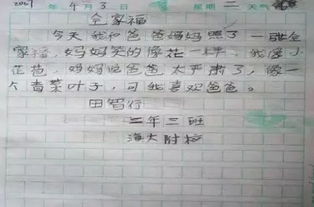 2009年4月3日 星期二 天气
全家福
今天我和爸爸妈妈照了一张全
家福，妈妈笑的像花一样，我像小
花苞，妈妈说爸爸太严肃了，像一
个青菜叶子，可我喜欢爸爸。
田智行
二年三班
海大附校